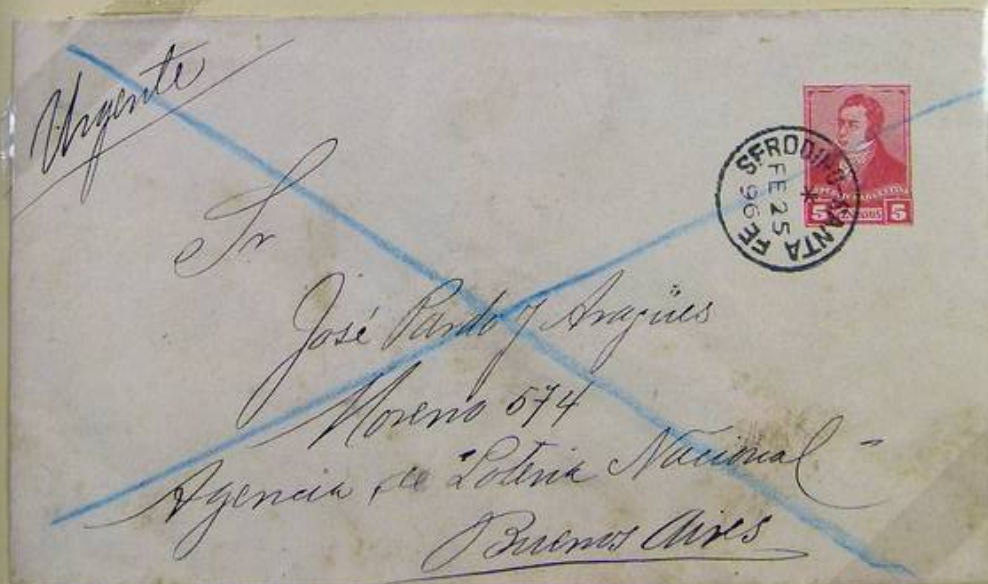 Urgente
SERODINO * SANTA FE
FE 25
96
5 CENTAVOS 5
Sr
José Pardo y Aragües
Moreno 574
Agencia de "Loteria Nacional"
Buenos Aires